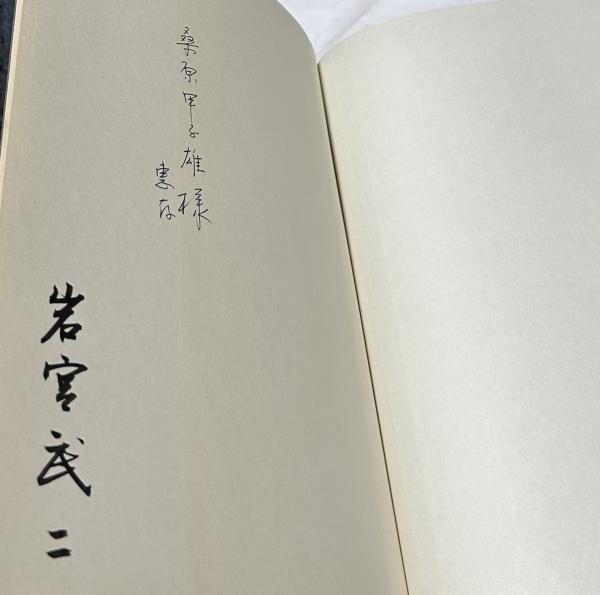 桑原甲子雄様
恵存
岩宮武二